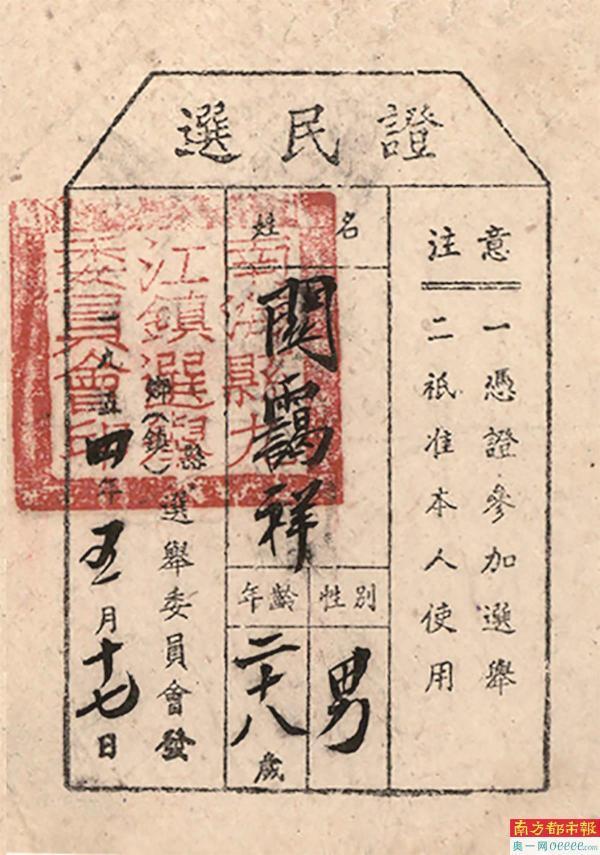 選民證
注意
一憑證參加選舉
二祇准本人使用
姓名
関靄祥
性別
男
年齡
二十八歲
縣鄉(鎮)選舉委員會發
一九五四年五月十七日
南海縣九
江鎮選舉
委員會印
南方都市報
奥一网oeeee.com